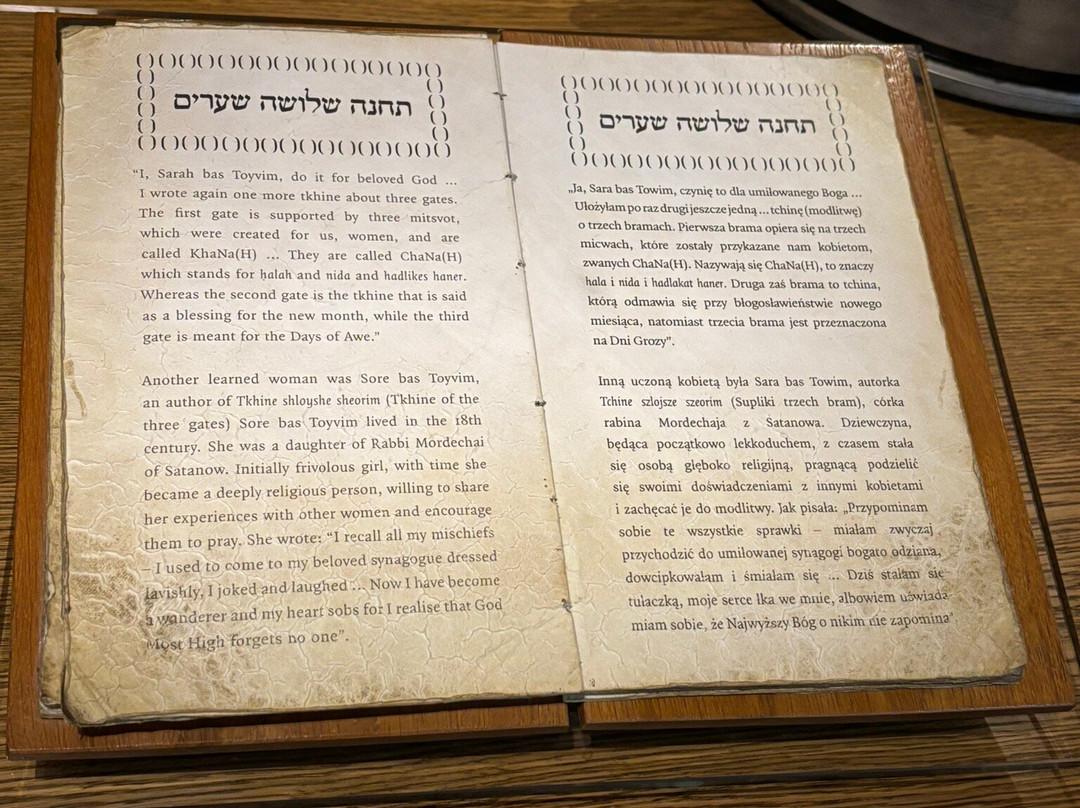 תחנה שלושה שערים
“I, Sarah bas Toyvim, do it for beloved God ...
I wrote again one more tkhine about three gates.
The first gate is supported by three mitsvot,
which were created for us, women, and are
called KhaNa(H) ... They are called ChaNa(H)
which stands for ḥalah and nida and hadlikes haner.
Whereas the second gate is the tkhine that is said
as a blessing for the new month, while the third
gate is meant for the Days of Awe.”
Another learned woman was Sore bas Toyvim,
an author of Tkhine shloyshe sheorim (Tkhine of the
three gates) Sore bas Toyvim lived in the 18th
century. She was a daughter of Rabbi Mordechai
of Satanow. Initially frivolous girl, with time she
became a deeply religious person, willing to share
her experiences with other women and encourage
them to pray. She wrote: “I recall all my mischiefs
– I used to come to my beloved synagogue dressed
lavishly, I joked and laughed ... Now I have become
a wanderer and my heart sobs for I realise that God
Most High forgets no one”.
תחנה שלושה שערים
„Ja, Sara bas Towim, czynię to dla umiłowanego Boga ...
Ułożyłam po raz drugi jeszcze jedną ... tchinę (modlitwę)
o trzech bramach. Pierwsza brama opiera się na trzech
micwach, które zostały przykazane nam kobietom,
zwanych ChaNa(H). Nazywają się ChaNa(H), to znaczy
hala i nida i hadlakat haner. Druga zaś brama to tchina,
którą odmawia się przy błogosławieństwie nowego
miesiąca, natomiast trzecia brama jest przeznaczona
na Dni Grozy”.
Inną uczoną kobietą była Sara bas Towim, autorka
Tchine szlojsze szeorim (Supliki trzech bram), córka
rabina Mordechaja z Satanowa. Dziewczyna,
będąca początkowo lekkoduchem, z czasem stała
się osobą głęboko religijną, pragnącą podzielić
się swoimi doświadczeniami z innymi kobietami
i zachęcać je do modlitwy. Jak pisała: „Przypominam
sobie te wszystkie sprawki – miałam zwyczaj
przychodzić do umiłowanej synagogi bogato odziana,
dowcipkowałam i śmiałam się ... Dziś stałam się
tułaczką, moje serce łka we mnie, albowiem uświada-
miam sobie, że Najwyższy Bóg o nikim nie zapomina”